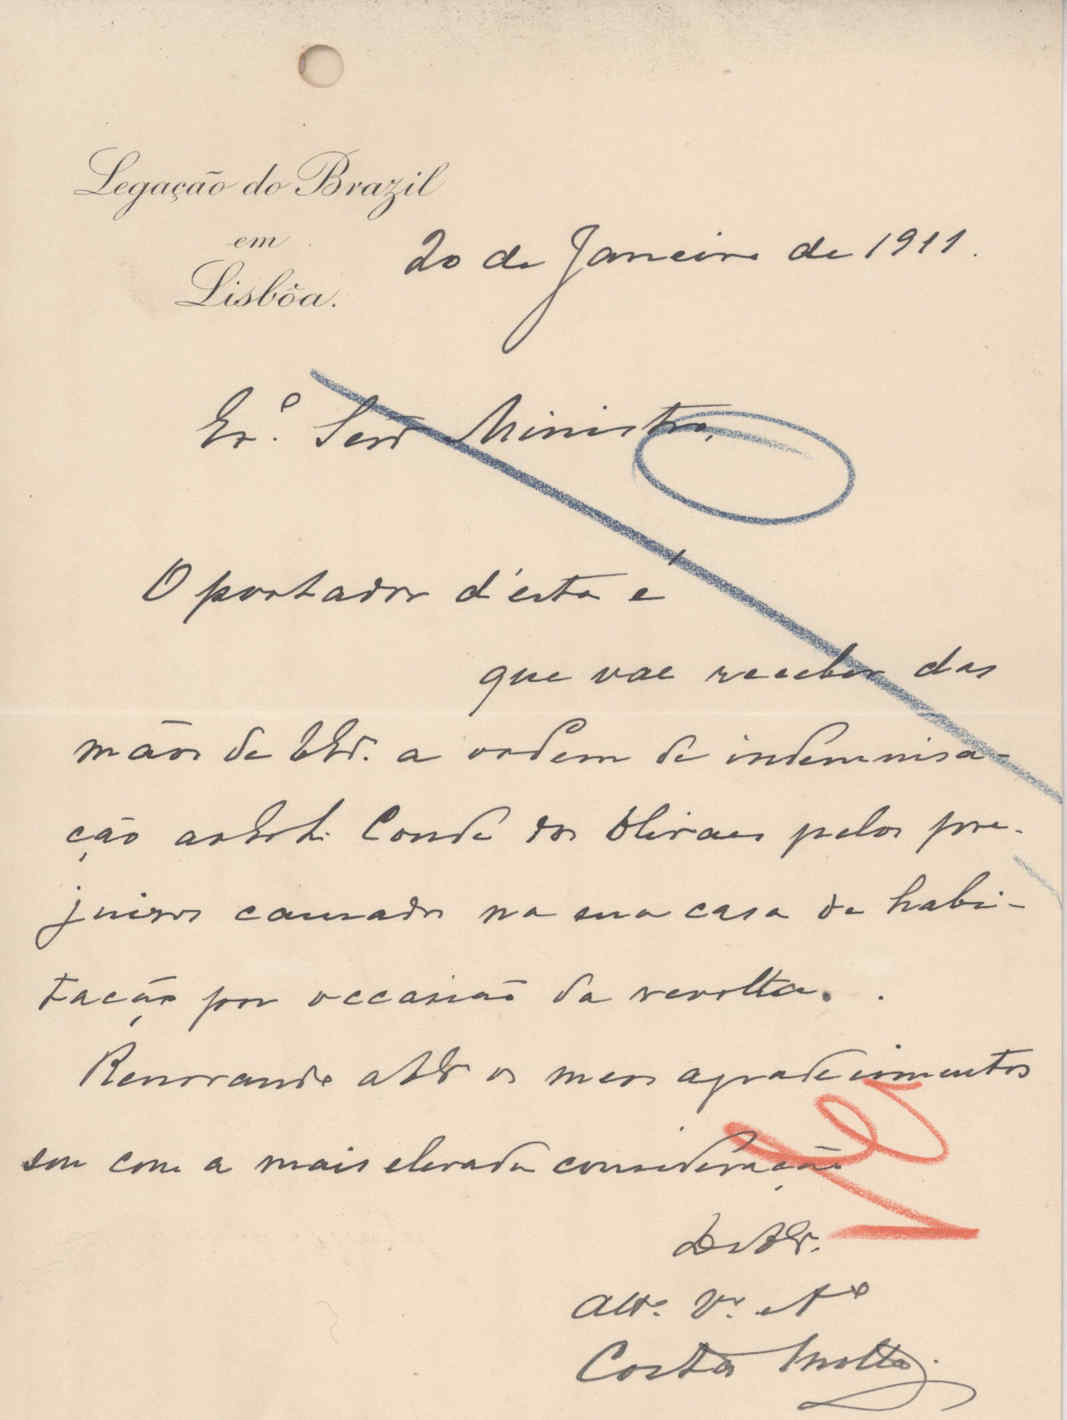 Legação do Brazil
em
Lisbôa.
20 de Janeiro de 1911.
Ex.º Senr Ministro,
O portador d'esta é
que vae receber das
mãos de V Ex. a ordem de indemnisa-
ção ao Conde dos Olivaes pelos pre-
juizos causados na sua casa de habi-
tação por occasião da revolta.
Renovando a V Ex os meus agradecimentos
sou com a mais elevada consideração
De V Ex.
Att.º V.r e
Costa Motta